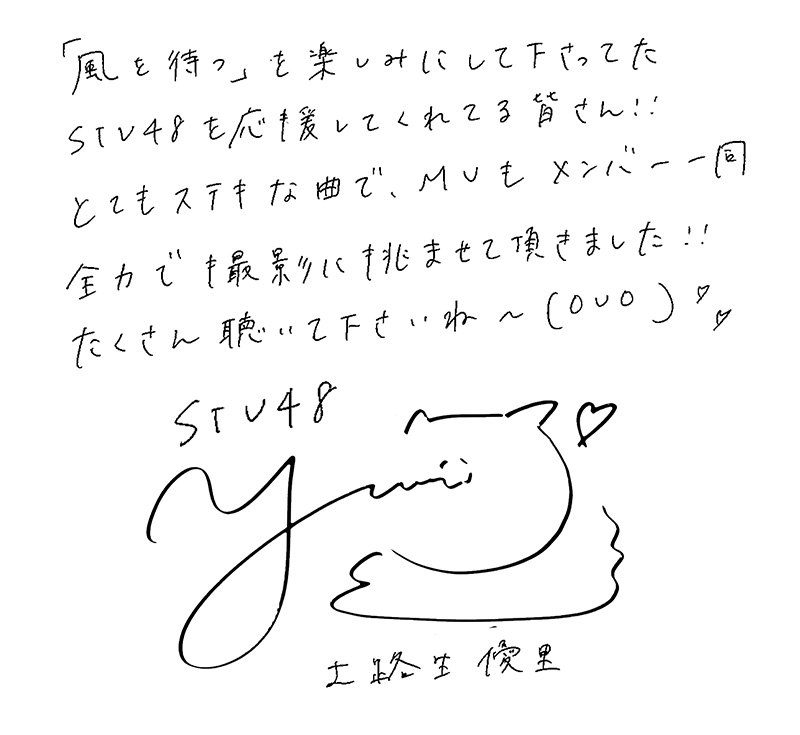 「風を待つ」を楽しみにして下さってた
STU48を応援してくれてる皆さん!!
とてもステキな曲で、MVもメンバー一同
全力でも撮影に挑ませて頂きました!!
たくさん聴いて下さいね~(OVO)♡♡
STU48
yurii ♡
土路生優里